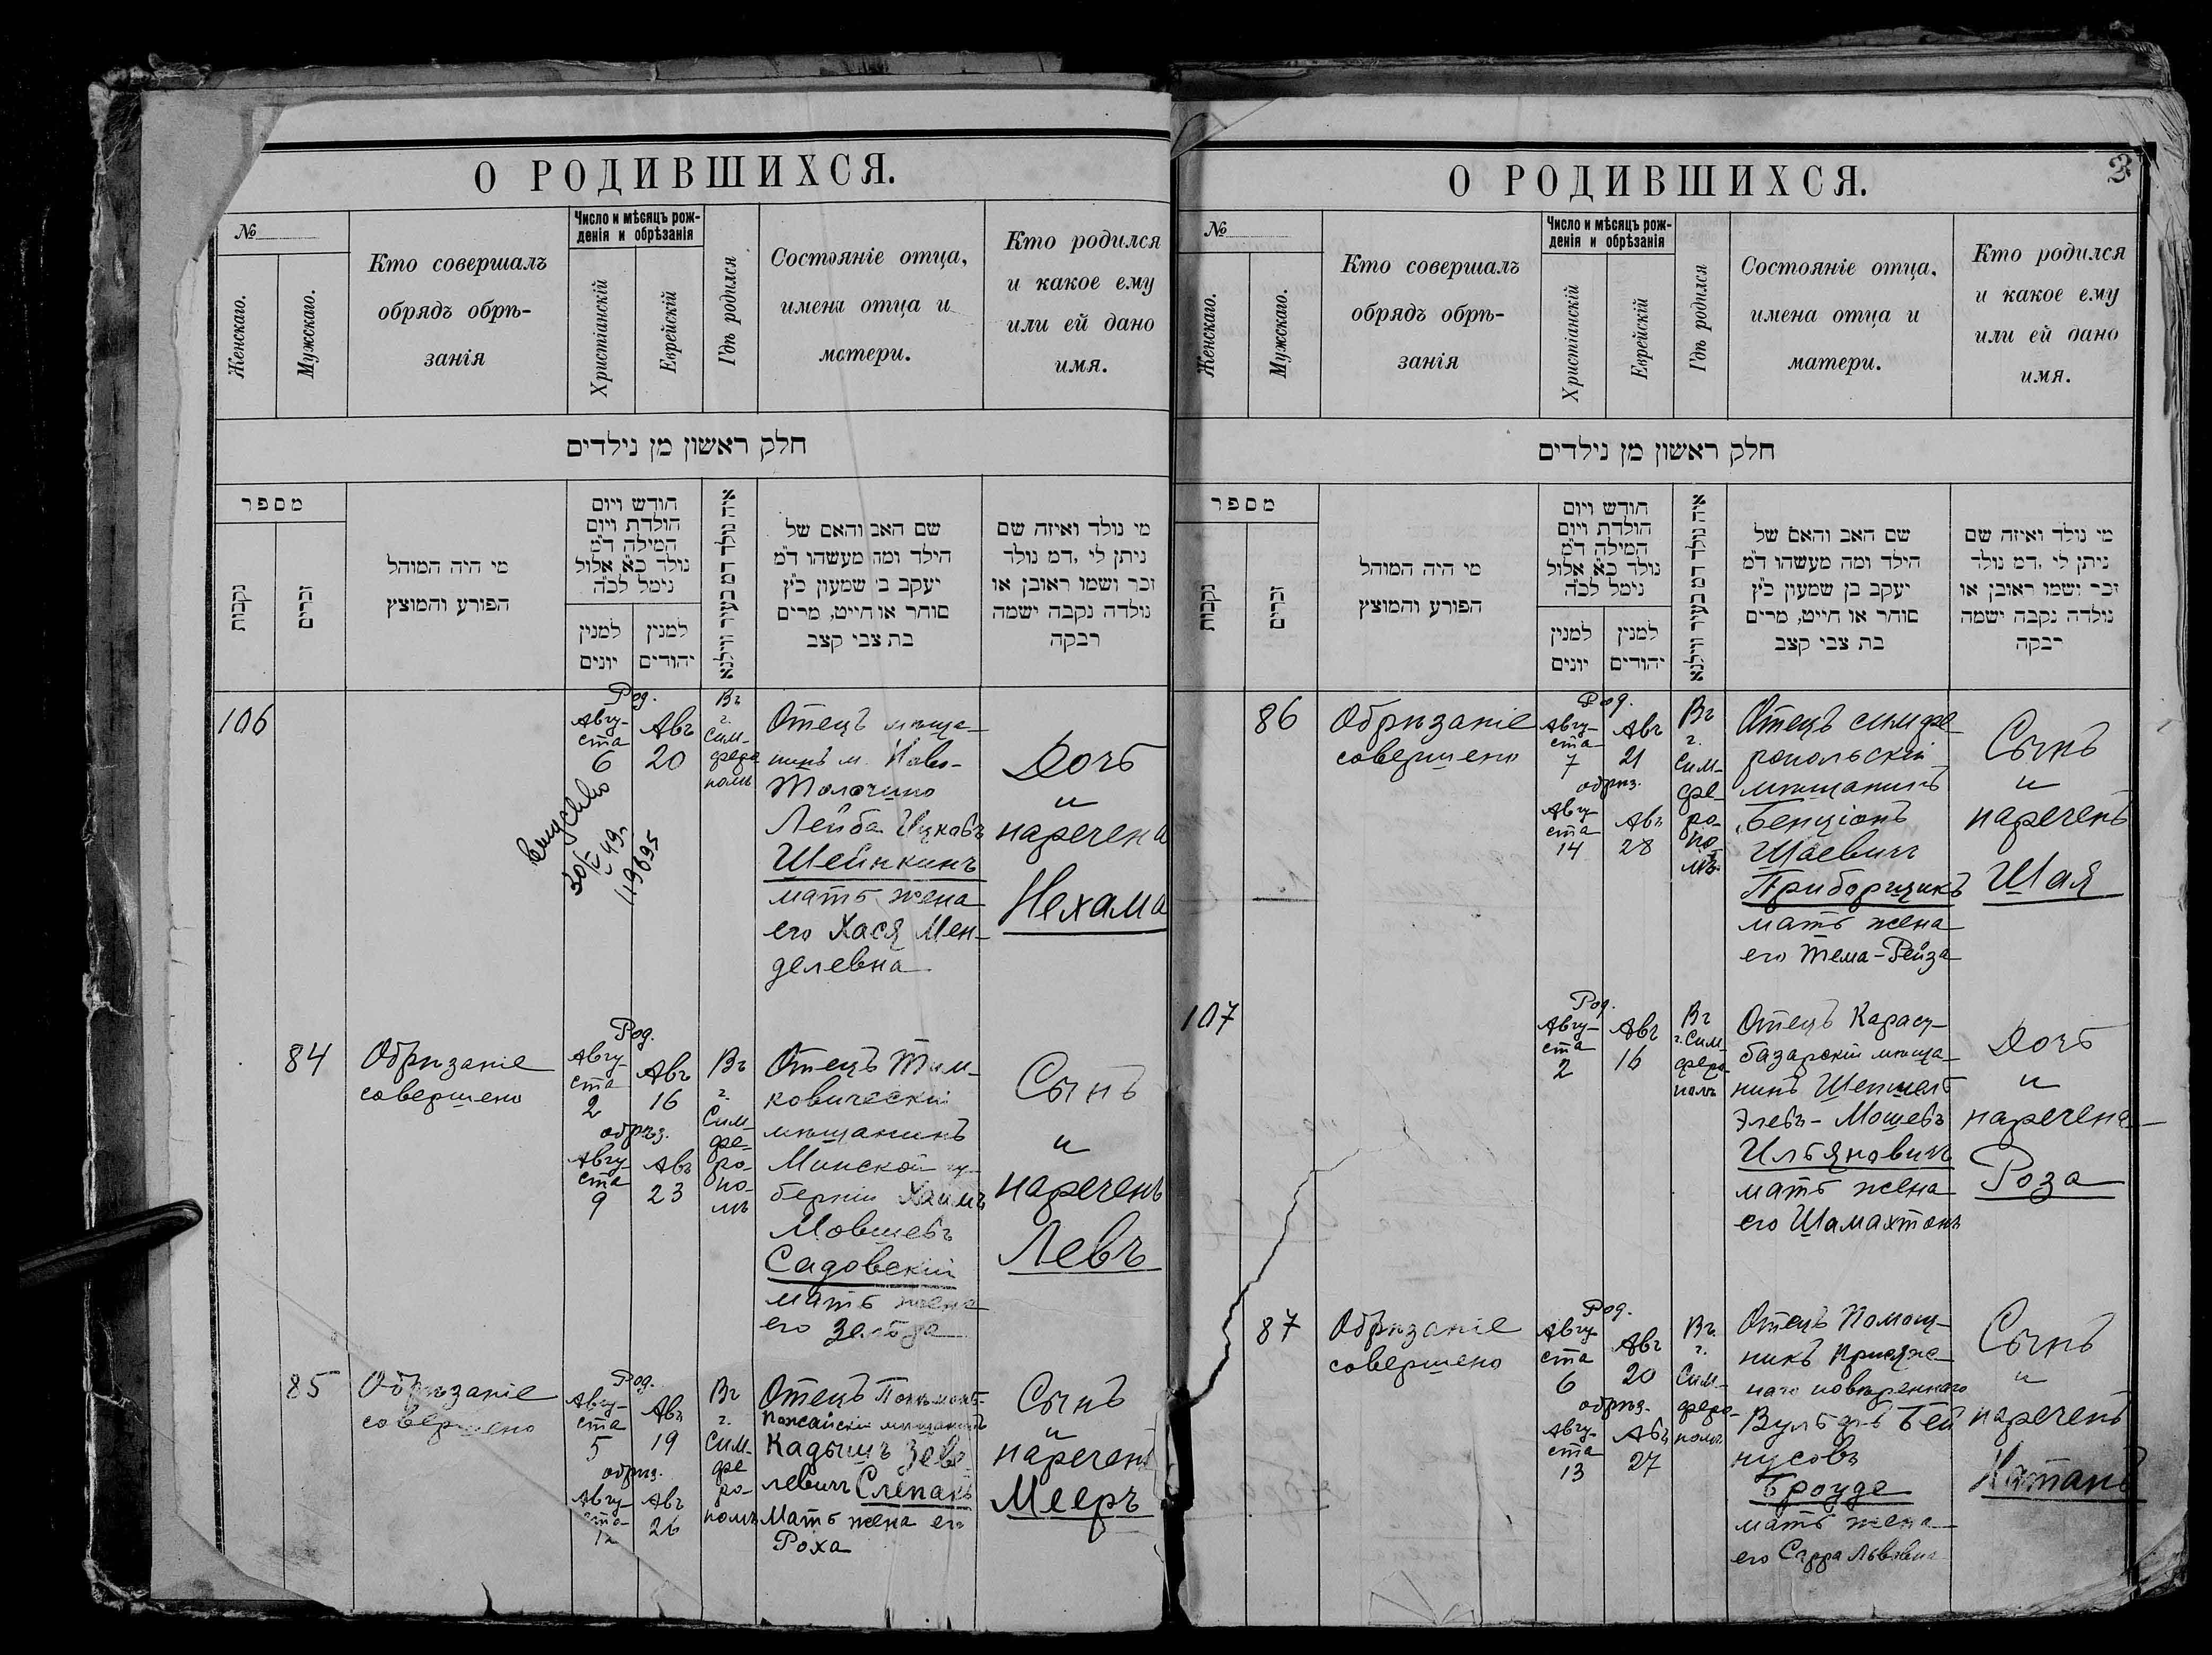 О РОДИВШИХСЯ.
№
Женскаго.
Мужскаго.
Кто совершалъ
обрядъ обрѣ-
занія
Число и мѣсяцъ рож-
денія и обрѣзанія
Христіанскій
Еврейскій
Гдѣ родился
Состояніе отца,
имена отца и
матери.
Кто родился
и какое ему
или ей дано
имя.
חלק ראשון מן נילדים
מספר
נקבות
זכרים
מי היה המוהל
הפורע והמוצץ
חודש ויום
הולדת ויום
המילה ד"מ
נולד כ"א אלול
נימל לכ"ה
למנין
יונים
למנין
יהודים
איה נולד דמ בעיר ווילנא
שם האב והאם של
הילד ומה מעשהו ד"מ
יעקב ב שמעון כ"ץ
סוחר או חייט, מרים
בת צבי קצב
מי נולד ואיזה שם
ניתן לי ,דמ נולד
זכר ושמו ראובן או
נולדה נקבה ישמה
רבקה
106
Род.
Авгу-
ста
6
Авъ
20
Въ
г.
Сим-
феро
полѣ
Отецъ мѣща-
нинъ м. Ново-
Толочино
Лейба Ицковъ
Шейнкинъ
мать жена
его Хася Мен-
делевна
Дочь
и
наречена
Нехама
49г.
119695
84
Обрѣзаніе
совершено
Род.
Авгу-
ста
2
Авъ
16
обрѣз.
Авгу-
ста
9
Авъ
23
Въ
г.
Сим-
фе-
ро-
по-
лѣ
Отецъ Тим-
ковическій
мѣщанинъ
Минской гу-
берніи Хаимъ
Мовшевъ
Садовскій
мать жена
его Зельда
Сынъ
и
нареченъ
Левъ
85
Обрѣзаніе
совершено
Род.
Авгу-
ста
5
Авъ
19
обрѣз.
Авгу-
ста
12
Авъ
26
Въ
г.
Сим-
фе
ро-
полѣ
Отецъ
мѣщанинъ
Кадышъ
левичъ Слепакъ
Мать жена его
Роха
Сынъ
и
нареченъ
Мееръ
О РОДИВШИХСЯ.
3
№
Женскаго.
Мужскаго.
Кто совершалъ
обрядъ обрѣ-
занія
Число и мѣсяцъ рож-
денія и обрѣзанія
Христіанскій
Еврейскій
Гдѣ родился
Состояніе отца,
имена отца и
матери.
Кто родился
и какое ему
или ей дано
имя.
חלק ראשון מן נילדים
מספר
נקבות
זכרים
מי היה המוהל
הפורע והמוצץ
חודש ויום
הולדת ויום
המילה ד"מ
נולד כ"א אלול
נימל לכ"ה
למנין
יונים
למנין
יהודים
איה נולד דמ בעיר ווילנא
שם האב והאם של
הילד ומה מעשהו ד"מ
יעקב בן שמעון כ"ץ
סוחר או חייט, מרים
בת צבי קצב
מי נולד ואיזה שם
ניתן לי ,דמ נולד
זכר ושמו ראובן או
נולדה נקבה ישמה
רבקה
86
Обрѣзаніе
совершено
Род.
Авгу-
ста
7
Авъ
21
обрѣз.
Авгу-
ста
14
Авъ
28
Въ
г.
Сим-
фе-
ро-
по-
лѣ
Отецъ симфе
ропольскій
мѣщанинъ
Бенціонъ
Шаевичъ
Приборщикъ
мать жена
его Тема-Рейза
Сынъ
и
нареченъ
Шая
107
Род.
Авгу-
ста
2
Авъ
16
Въ
г. Сим-
феро-
полѣ
Отецъ Карасу-
базарскій мѣща-
нинъ Шепшелъ
Элевъ-Мошевъ
Ильяновичъ
мать жена
его Шамахтонъ
Дочь
и
наречена
Роза
87
Обрѣзаніе
совершено
Род.
Авгу-
ста
6
Авъ
20
обрѣз.
Авгу-
ста
13
Авъ
27
Въ
г.
Сим-
феро-
полѣ
Отецъ Помощ-
никъ Присяж-
наго повѣреннаго
Вульфъ Бей
нусовъ
Броуде
мать жена
его Сарра Львовна
Сынъ
и
нареченъ
Натанъ